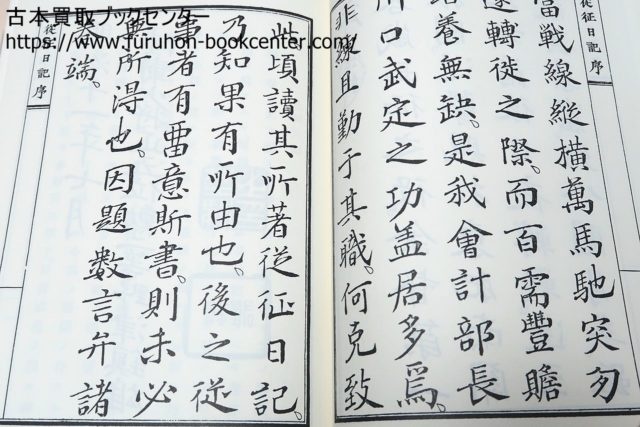 古本買取ブックセンター
https://www.furuhon-bookcenter.com/
從征日記序
當戰線縱橫萬馬馳突匆
遽轉徙之際。而百需豐贍
培養無缺。是我會計部長
川口武定之功盖居多焉。
非練且勤于其職。何克致
此頃讀其所著從征日記。
乃知果有所由也。後之從
軍者有留意斯書。則未必
無所得也。因題數言弁諸
卷端。
從征日記序